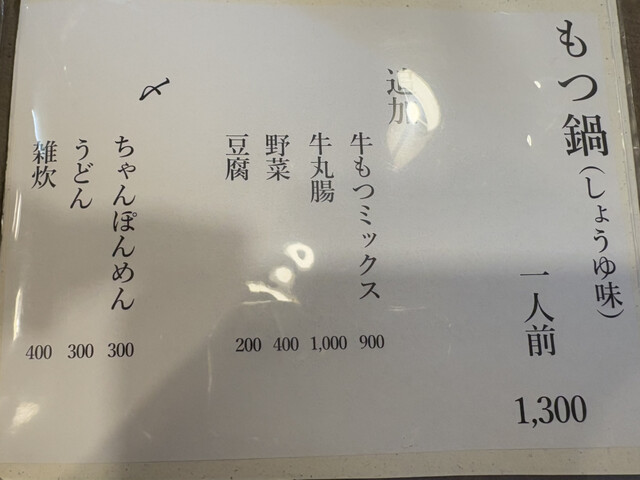 もつ鍋(しょうゆ味)
一人前 1,300
追加
牛もつミックス 900
牛丸腸 1,000
野菜 400
豆腐 200
〆
ちゃんぽんめん 300
うどん 300
雑炊 400